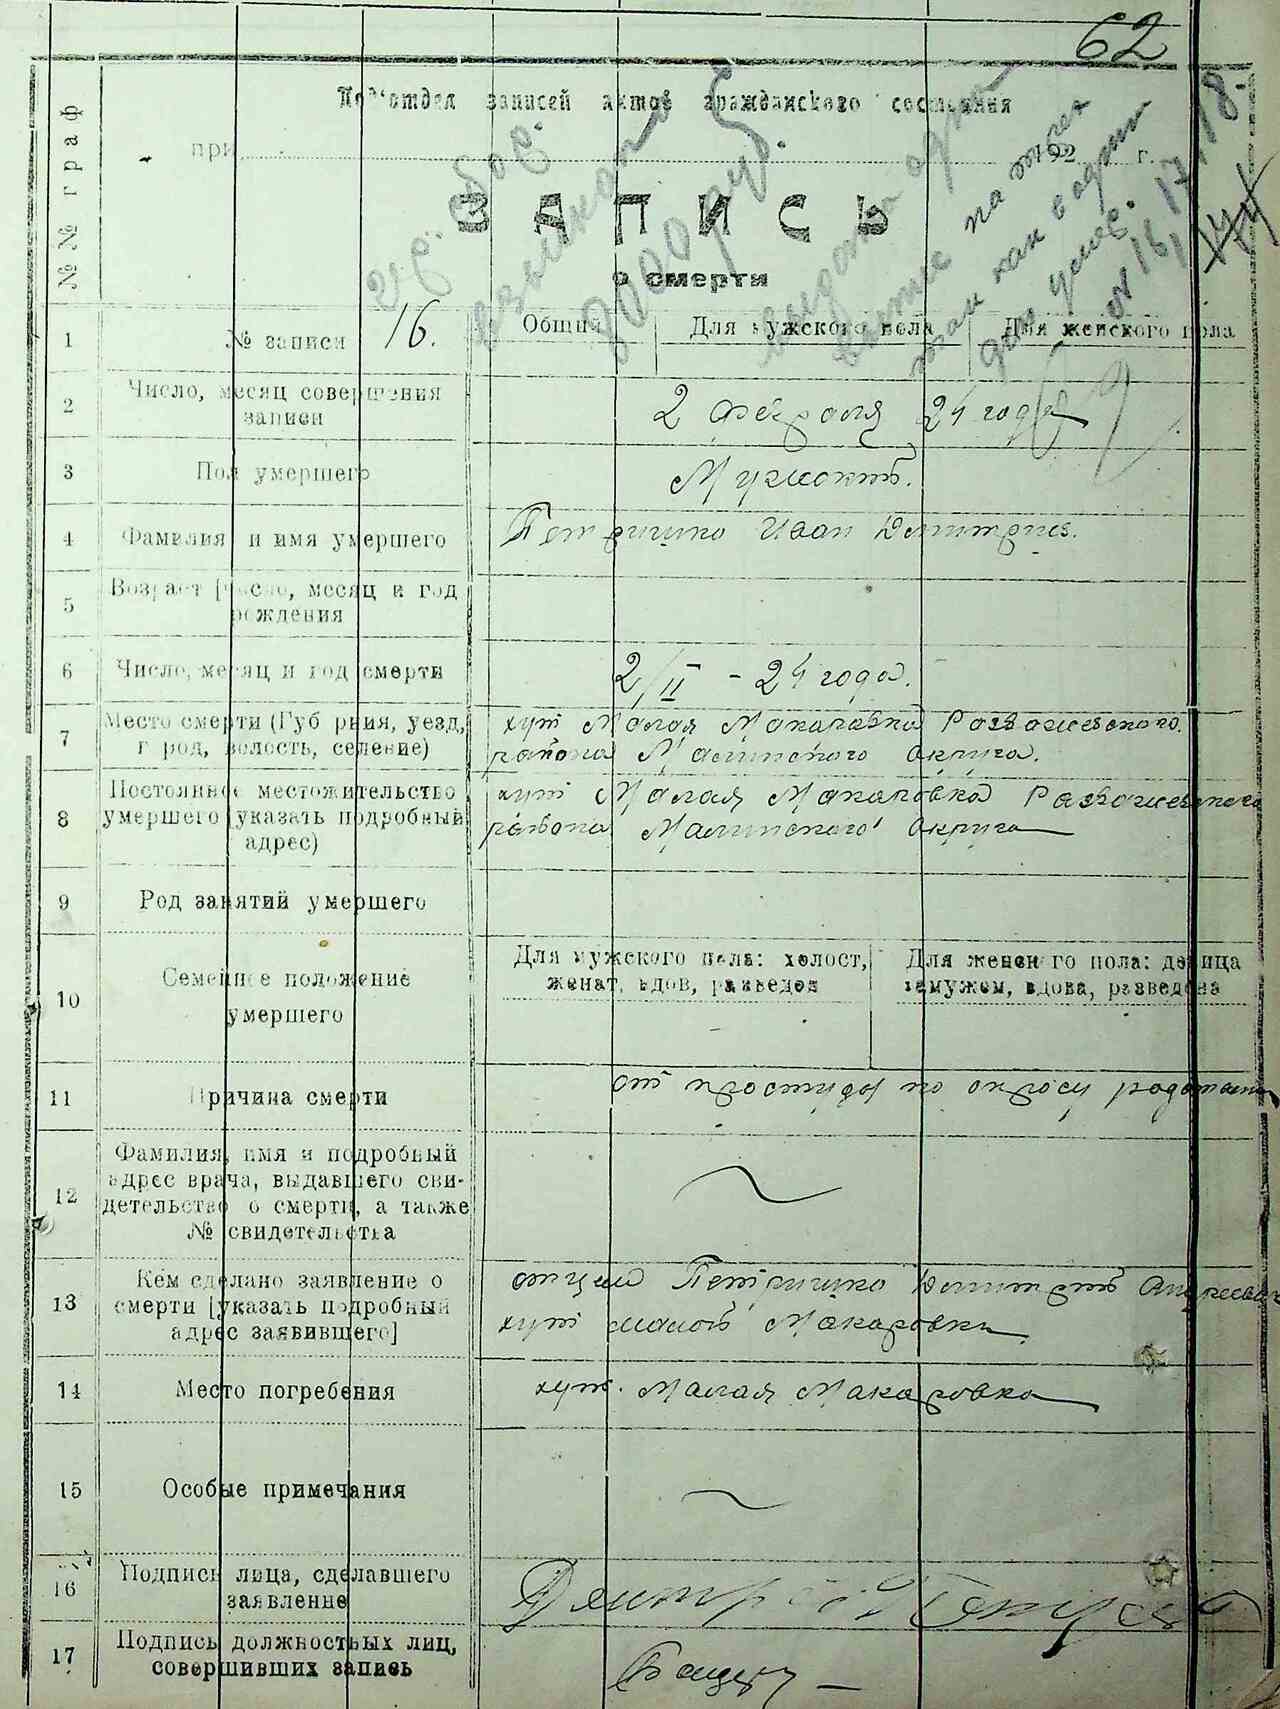 62
Под'отдел записей актов гражданского состояния
при 192 г.
ЗАПИСЬ
о смерти
№№ граф
взыскано
8000 руб.
выдана одна
выпис на трех
так как в один
день умер.
№ 16, 17, 18.
1 № записи 16. Общий Для мужского пола Для женского пола
2 Число, месяц совершения
записи
2 февраля 24 года
3 Пол умершего Мужской.
4 Фамилия и имя умершего Петрищко Иван Дмитриев.
5 Возраст [число, месяц и год
рождения
6 Число, месяц и год смерти 2/II - 24 года.
7 Место смерти (Губерния, уезд,
город, волость, селение)
хут Малая Макаровка Розважевского
района Малинского округа.
8 Постоянное местожительство
умершего [указать подробный
адрес)
хут Малая Макаровка Розважевского
района Малинского округа
9 Род занятий умершего
10 Семейное положение
умершего
Для мужского пола: холост,
женат, вдов, разведен
Для женского пола: девица
замужем, вдова, разведена
11 Причина смерти от простуды по опросу родителей
12 Фамилия, имя и подробный
адрес врача, выдавшего сви-
детельство о смерти, а также
№ свидетельства
13 Кем сделано заявление о
смерти [указать подробный
адрес заявившего]
отцем Петрищко Дмитрий Андреевич
хут малой Макаровки
14 Место погребения хут. Малая Макаровка
15 Особые примечания
16 Подпись лица, сделавшего
заявление
Дмитрий
17 Подпись должностных лиц,
совершивших запись